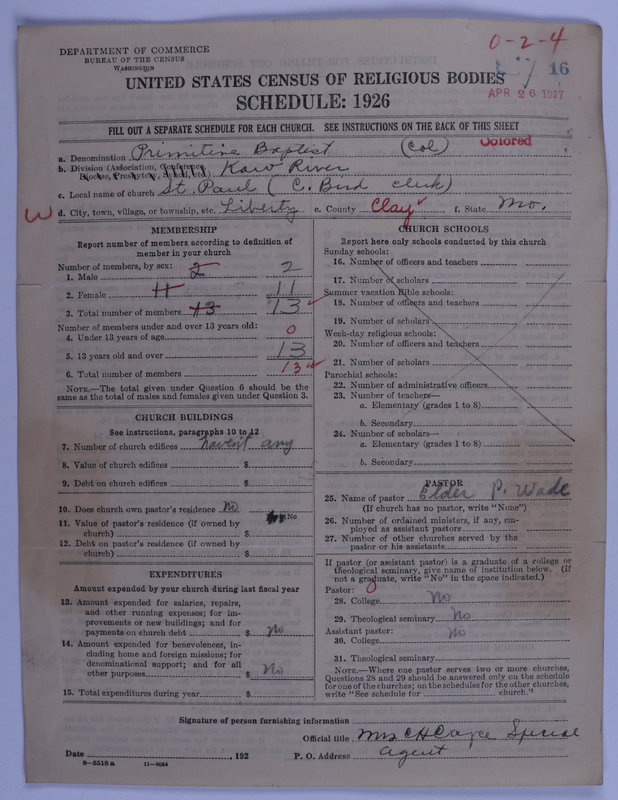 DEPARTMENT OF COMMERCE
BUREAU OF THE CENSUS
WASHINGTON
0-2-4
16
APR 26 1927
UNITED STATES CENSUS OF RELIGIOUS BODIES
SCHEDULE: 1926
FILL OUT A SEPARATE SCHEDULE FOR EACH CHURCH. SEE INSTRUCTIONS ON THE BACK OF THIS SHEET
a. Denomination Primitive Baptist (Col) Colored
b. Division (Association, Conference, Diocese, Presbytery, Kaw River
c. Local name of church St. Paul (C. Bird clerk)
W d. City, town, village, or township, etc. Liberty e. County Clay f. State Mo.
MEMBERSHIP
Report number of members according to definition of
member in your church
Number of members, by sex:
1. Male 2 2
2. Female 11 11
3. Total number of members 13 13
Number of members under and over 13 years old:
4. Under 13 years of age 0
5. 13 years old and over 13
6. Total number of members 13
NOTE.—The total given under Question 6 should be the
same as the total of males and females given under Question 3.
CHURCH BUILDINGS
See instructions, paragraphs 10 to 12
7. Number of church edifices haven't any
8. Value of church edifices $
9. Debt on church edifices $
10. Does church own pastor's residence No
No
11. Value of pastor's residence (if owned by
church) $
12. Debt on pastor's residence (if owned by
church) $
EXPENDITURES
Amount expended by your church during last fiscal year
13. Amount expended for salaries, repairs,
and other running expenses; for im-
provements or new buildings; and for
payments on church debt $ No
14. Amount expended for benevolences, in-
cluding home and foreign missions; for
denominational support; and for all
other purposes $ No
15. Total expenditures during year $
CHURCH SCHOOLS
Report here only schools conducted by this church
Sunday schools:
16. Number of officers and teachers
17. Number of scholars
Summer vacation Bible schools:
18. Number of officers and teachers
19. Number of scholars
Week-day religious schools:
20. Number of officers and teachers
21. Number of scholars
Parochial schools:
22. Number of administrative officers
23. Number of teachers—
a. Elementary (grades 1 to 8)
b. Secondary
24. Number of scholars—
a. Elementary (grades 1 to 8)
b. Secondary
PASTOR
25. Name of pastor Elder P. Wade
(If church has no pastor, write "None")
26. Number of ordained ministers, if any, em-
ployed as assistant pastors
27. Number of other churches served by the
pastor or his assistants
If pastor (or assistant pastor) is a graduate of a college or
theological seminary, give name of institution below. (If
not a graduate, write "No" in the space indicated.)
Pastor: 0
28. College No
29. Theological seminary No
Assistant pastor: No
30. College
31. Theological seminary
NOTE.—Where one pastor serves two or more churches,
Questions 28 and 29 should be answered only on the schedule
for one of the churches; on the schedules for the other churches,
write "See schedule for church."
Signature of person furnishing information
Official title Mrs CH Special
Date , 192 P. O. Address agent
8—5318a 11—9084